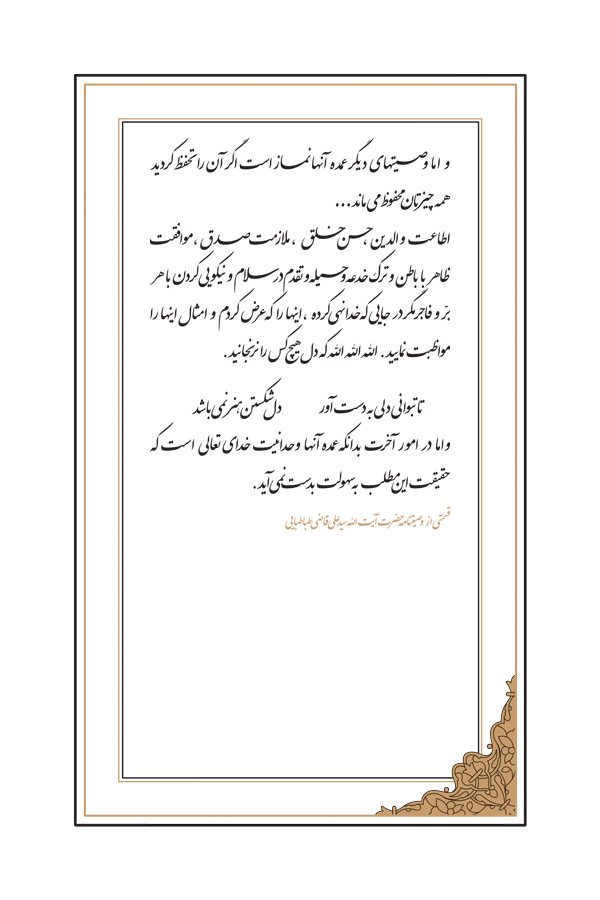 و اما وصیتهای دیگر عمده آنها نماز است اگر آن را تحفظ کردید
همه چیزتان محفوظ می ماند...
اطاعت والدین ، حسن خلق ، ملازمت صدق ، موافقت
ظاهر با باطن و ترک خدعه و حیله و تقدم در سلام و نیکویی کردن با هر
برّ و فاجر مگر در جایی که خدا نهی کرده ، اینها را که عرض کردم و امثال اینها را
مواظبت نمایید . الله الله الله که دل هیچ کس را نرنجانید .
تا توانی دلی به دست آور دل شکستن هنر نمی باشد
واما در امور آخرت بدانکه عمده آنها وحدانیت خدای تعالی است که
حقیقت این مطلب به سهولت بدست نمی آید .
قسمتی از وصیتنامه حضرت آیت الله سید علی قاضی طباطبایی